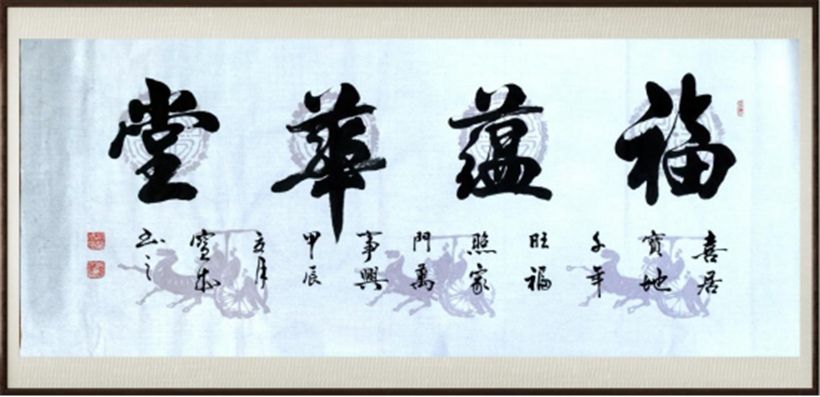 福蘊華堂
喜居
寶地
千年
旺福
照家
門萬
事興
甲辰
五月
書之